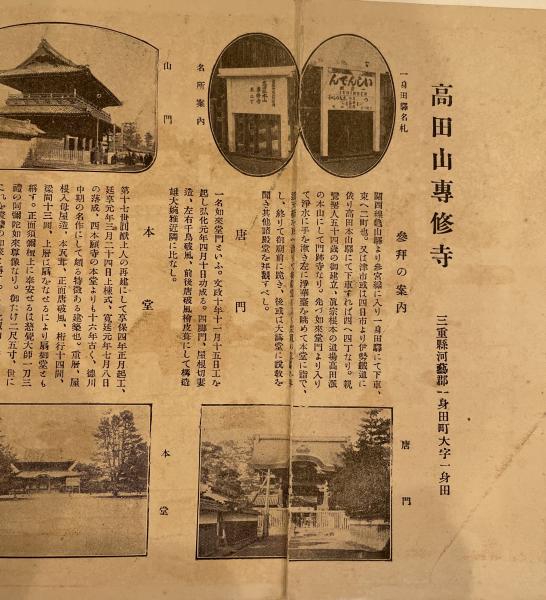 高田山專修寺
三重縣河藝郡一身田町大字一身田
參拜の案内
關西線龜山驛より參宮線に入り一身田驛にて下車、
東へ二町也。又は津市或は四日市より伊勢鐵道に
依り高田本山驛にて下車すれば西へ四丁なり。親
鸞聖人五十四歳の御建立、眞宗根本の道場高田派
の本山にして門跡寺なり。先づ如來堂門より入り
て淨水に手を漱き左に淨華臺を眺めて本堂に詣で、
し、終りて御廟前に跪き、後或は大講堂に説教を
聞き其他諸殿堂を拜觀すべし。
一身田驛名札
いしんでん
名所案内
山門
唐門
一名如來堂門といふ。文政十年十一月十五日工を
起し弘化元年四月十日功成る。四脚門、屋根切妻
造、左右千鳥破風、前後唐破風檜皮葺にして構造
雄大婉雅近隣に比なし。
本堂
第十七世圓猷上人の再建にして享保四年正月起工、
延享元年三月二十四日上棟式、寛延元年七月八日
の落成、西本願寺の本堂よりも十六年古く、德川
中期の名作にして頗る特徴ある建築也。重層、屋
根入母屋造、本瓦葺、正面唐破風、桁行十四間、
梁間十三間、上層に扇をなせるにより扇御堂とも
稱す。正面須彌檀上に奉安せるは慈覺大師一刀三
禮の阿彌陀如來尊像なり、御たけ二尺五寸、世に
唐門
本堂